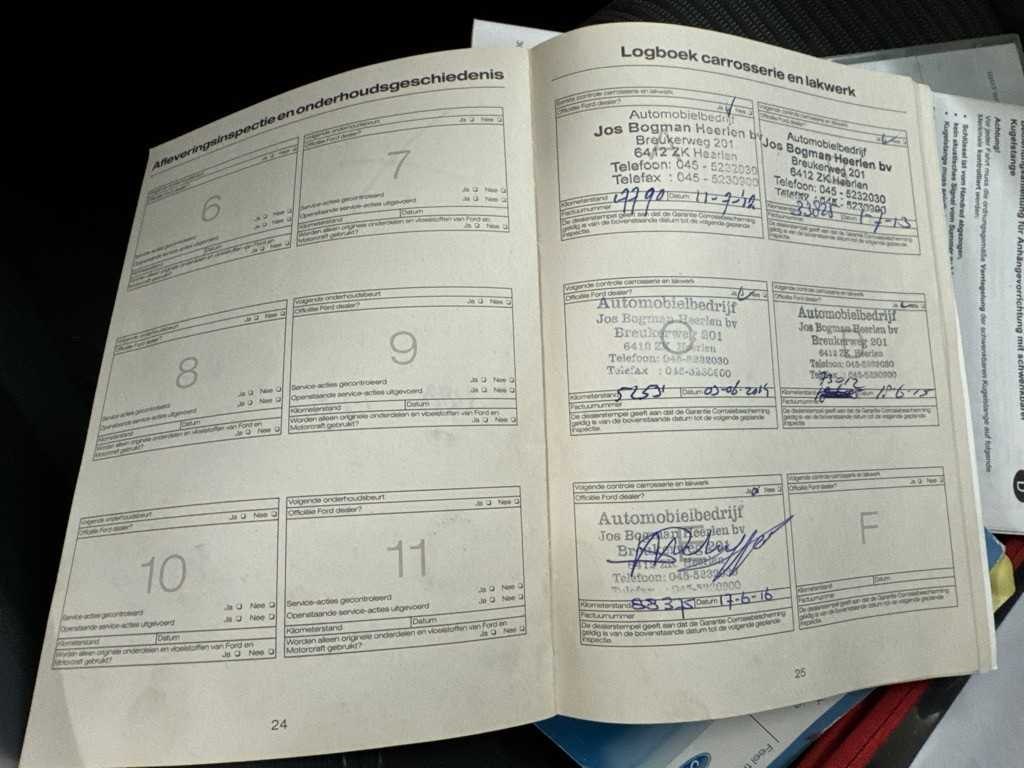 Afleveringsinspectie en onderhoudsgeschiedenis
Volgende onderhoudsbeurt
Officiële Ford dealer?
Ja Nee
6
Ja Nee
Service-acties gecontroleerd
Ja Nee
Openstaande service-acties uitgevoerd
Kilometerstand Datum
Worden alleen originele onderdelen en vloeistoffen van Ford en
Motorcraft gebruikt? Ja Nee
Volgende onderhoudsbeurt
Officiële Ford dealer? Ja Nee
7
Ja Nee
Service-acties gecontroleerd
Ja Nee
Openstaande service-acties uitgevoerd
Kilometerstand Datum
Worden alleen originele onderdelen en vloeistoffen van Ford en
Motorcraft gebruikt? Ja Nee
Volgende onderhoudsbeurt
Officiële Ford dealer? Ja Nee
8
Service-acties gecontroleerd Ja Nee
Openstaande service-acties uitgevoerd Ja Nee
Kilometerstand Datum
Worden alleen originele onderdelen en vloeistoffen van Ford en
Motorcraft gebruikt? Ja Nee
Volgende onderhoudsbeurt
Officiële Ford dealer? Ja Nee
9
Service-acties gecontroleerd Ja Nee
Openstaande service-acties uitgevoerd Ja Nee
Kilometerstand Datum
Worden alleen originele onderdelen en vloeistoffen van Ford en
Motorcraft gebruikt? Ja Nee
Volgende onderhoudsbeurt
Officiële Ford dealer? Ja Nee
10
Service-acties gecontroleerd Ja Nee
Openstaande service-acties uitgevoerd Ja Nee
Kilometerstand Datum
Worden alleen originele onderdelen en vloeistoffen van Ford en
Motorcraft gebruikt? Ja Nee
Volgende onderhoudsbeurt
Officiële Ford dealer? Ja Nee
11
Service-acties gecontroleerd Ja Nee
Openstaande service-acties uitgevoerd Ja Nee
Kilometerstand Datum
Worden alleen originele onderdelen en vloeistoffen van Ford en
Motorcraft gebruikt? Ja Nee
24
Logboek carrosserie en lakwerk
Eerste controle carrosserie en lakwerk
Officiële Ford dealer? Ja Nee
Automobielbedrijf
Jos Bogman Heerlen bv
Breukerweg 201
6412 ZK Heerlen
Telefoon: 045 - 5232030
Telefax : 045 - 5230900
Kilometerstand Datum 11-7-12
Factuurnummer
De dealerstempel geeft aan dat de Garantie Corrosiebescherming
geldig is van de bovenstaande datum tot de volgende geplande
inspectie.
Volgende controle carrosserie en lakwerk
Officiële Ford dealer?
Automobielbedrijf
Jos Bogman Heerlen bv
Breukerweg 201
6412 ZK Heerlen
Telefoon: 045 - 5232030
Telefax : 045 - 5230900
Datum
Factuurnummer
De dealerstempel geeft aan dat de Garantie Corrosiebescherming
geldig is van de bovenstaande datum tot de volgende geplande
inspectie.
Volgende controle carrosserie en lakwerk
Officiële Ford dealer?
Automobielbedrijf
Jos Bogman Heerlen bv
Breukerweg 201
6412 ZK Heerlen
Telefoon: 045-5232030
Telefax : 045-5230900
Kilometerstand Datum
Factuurnummer
De dealerstempel geeft aan dat de Garantie Corrosiebescherming
geldig is van de bovenstaande datum tot de volgende geplande
inspectie.
Volgende controle carrosserie en lakwerk
Officiële Ford dealer?
Automobielbedrijf
Jos Bogman Heerlen bv
Breukerweg 201
6412 ZK Heerlen
Telefoon: 045-5232030
Telefax : 045-5230900
Factuurnummer
De dealerstempel geeft aan dat de Garantie Corrosiebescherming
geldig is van de bovenstaande datum tot de volgende geplande
inspectie.
Volgende controle carrosserie en lakwerk
Officiële Ford dealer? Nee
Automobielbedrijf
Jos Bogman Heerlen bv
6412 ZK Heerlen
Telefoon: 045-523
Kilometerstand 88375 Datum 17-6-16
Factuurnummer
De dealerstempel geeft aan dat de Garantie Corrosiebescherming
geldig is van de bovenstaande datum tot de volgende geplande
inspectie.
Volgende controle carrosserie en lakwerk
Officiële Ford dealer? Ja Nee
F
Kilometerstand Datum
Factuurnummer
De dealerstempel geeft aan dat de Garantie Corrosiebescherming
geldig is van de bovenstaande datum tot de volgende geplande
inspectie.
25
Achtung!
Vor jeder Fahrt muss die ordnungsgemäße Verriegelung der schwenkbaren Kugelstange auf folgende
Merkmale kontrolliert werden:
• Schlüssel ist vom Handrad abgezogen,
D
Feel t